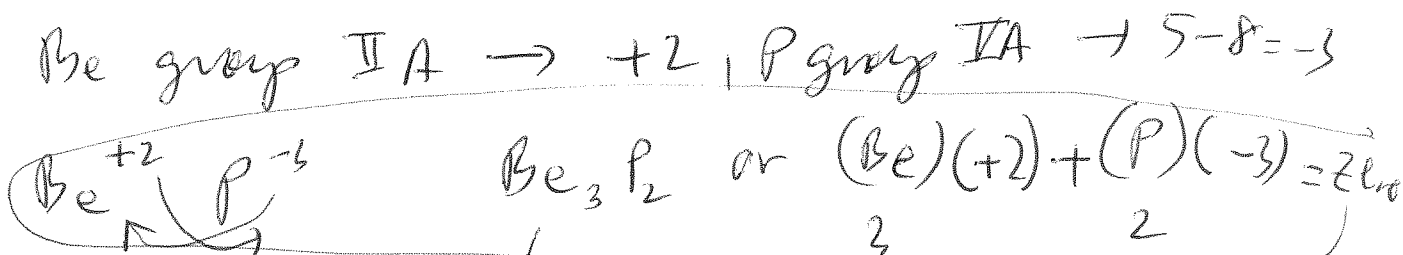 Be group IIA → +2, P group VA → 5-8=-3
Be⁺² P⁻³ Be₃P₂ or (Be)(+2)+(P)(-3)=Zero
3 2